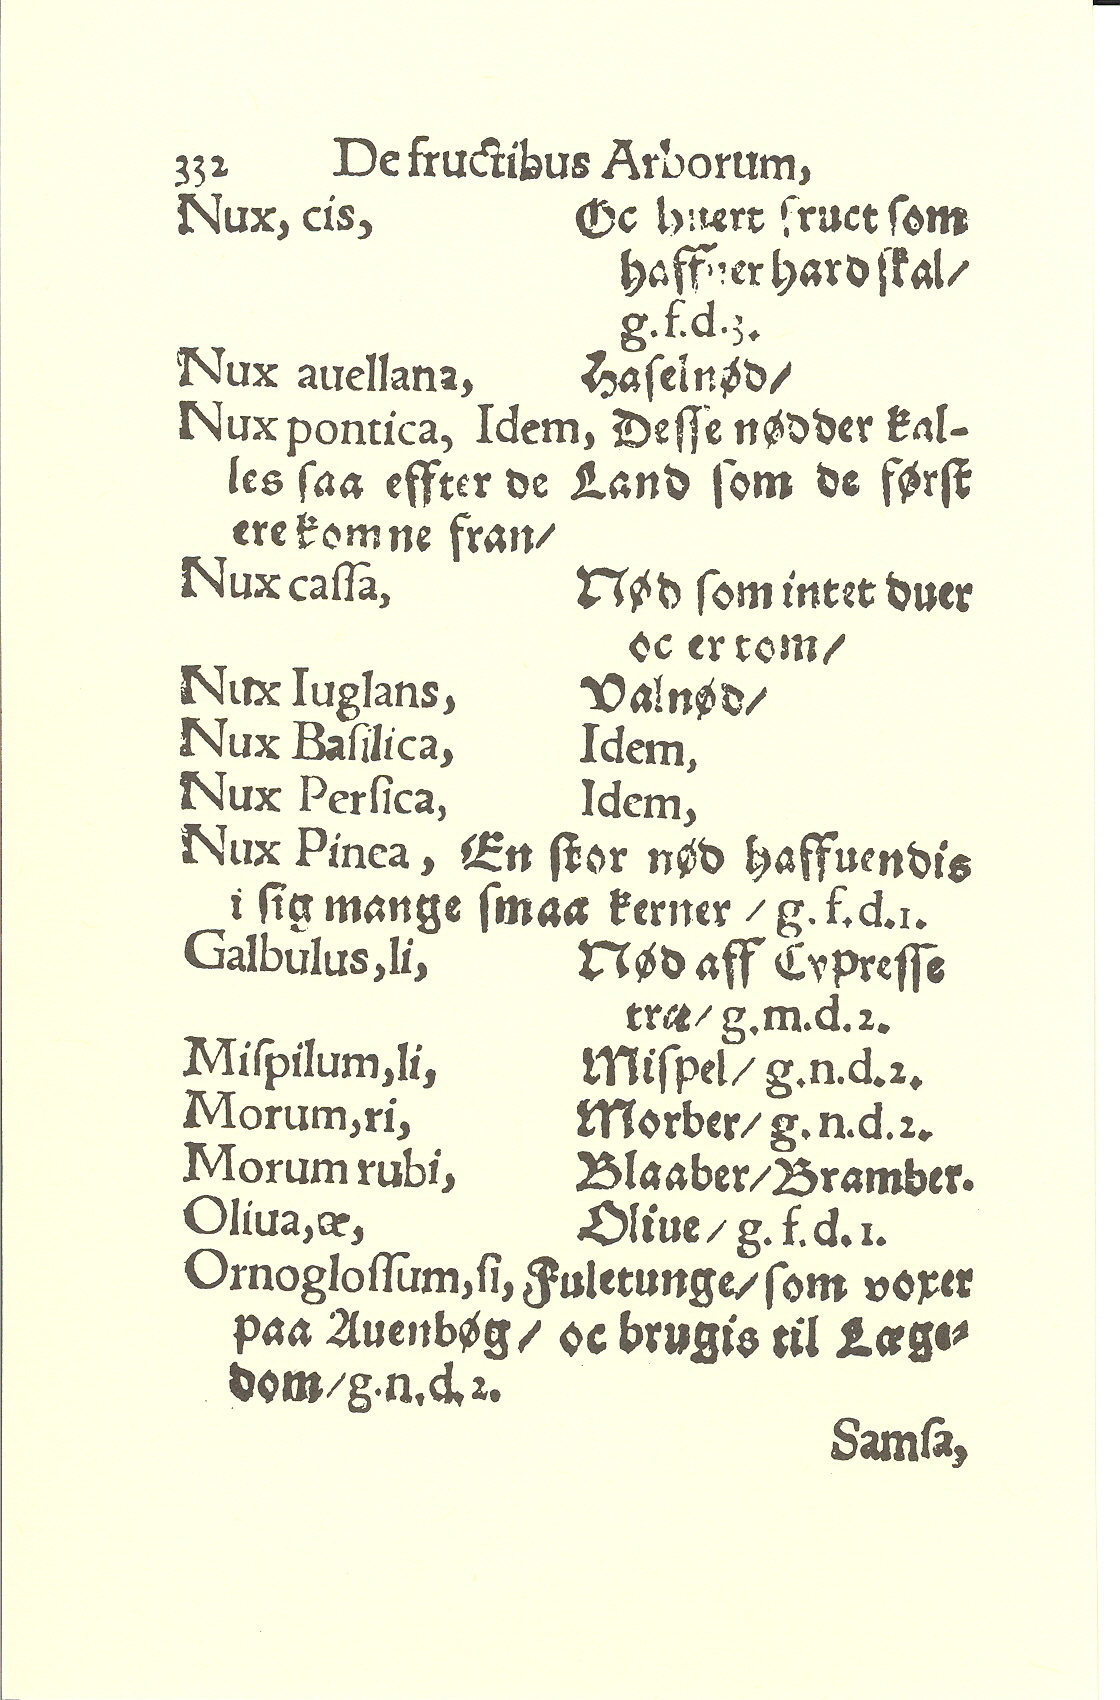 332 De fructibus Arborum,
Nux, cis, Oc huert fruct ſom
haffuer hard ſkal/
g.f.d.3.
Nux auellana, Haſelnød/
Nux pontica, Idem, Deſſe nødder kal-
les ſaa effter de Land ſom de førſt
ere komne fran/
Nux caſſa, Nød ſom intet duer
oc er tom/
Nux Iuglans, Valnød/
Nux Baſilica, Idem,
Nux Perſica, Idem,
Nux Pinea, En ſtor nød haffuendis
i ſig mange ſmaa kerner / g.f.d.1.
Galbulus,li, Nød aff Cypreſſe
træ/ g.m.d.2.
Miſpilum,li, Miſpel/ g.n.d.2.
Morum,ri, Morber/ g.n.d.2.
Morum rubi, Blaaber/Bramber.
Oliua,æ, Oliue/ g.f.d.1.
Ornogloſſum,ſi, Fuletunge/ſom voxer
paa Auenbøg/ oc brugis til Læge-
dom/g.n.d.2.
Samſa,